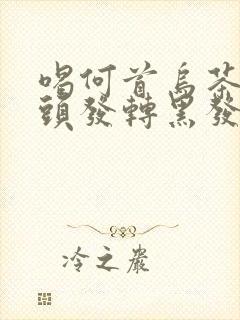 喝何首烏茶
頭發轉黑發
冷之巖